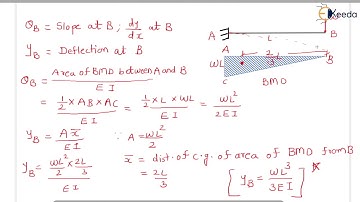 Ekeeda
θB = Slope at B ; dy/dx at B
yB = Deflection at B
θB = Area of BMD between A and B / E I
= 1/2 × AB × AC / E I = 1/2 × L × WL / E I = WL² / 2 E I
yB = A x̄ / E I ∵ A = WL² / 2
x̄ = dist. of c.g. of area of BMD from B
= 2L / 3
yB = WL²/2 × 2L/3 / E I [ yB = WL³ / 3 E I ]
A B
L
A 2/3 L B
WL
C
BMD